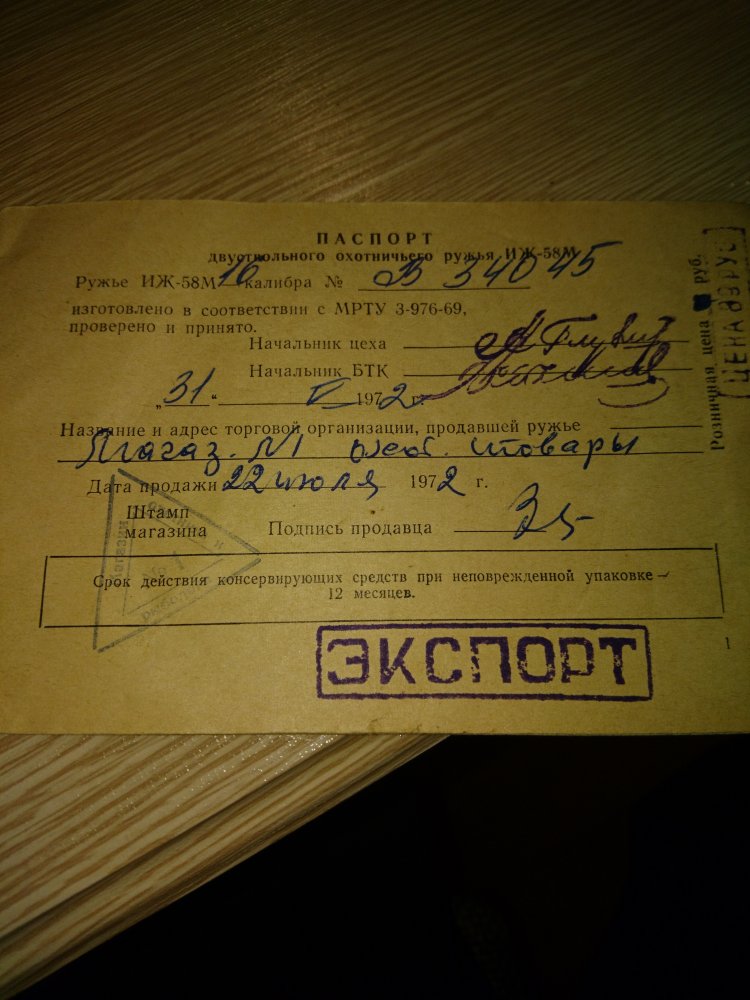 ПАСПОРТ
двуствольного охотничьего ружья ИЖ-58М
Ружье ИЖ-58М 16 калибра № В 34045
изготовлено в соответствии с МРТУ 3-976-69,
проверено и принято.
Начальник цеха
Начальник БТК
„31" V 1972 г.
Название и адрес торговой организации, продавшей ружье
Магаз. №1 товары
Дата продажи 22 июля 1972 г.
Штамп
магазина Подпись продавца
Срок действия консервирующих средств при неповрежденной упаковке —
12 месяцев.
ЭКСПОРТ
1
Розничная цена руб.
ЦЕНА РУС